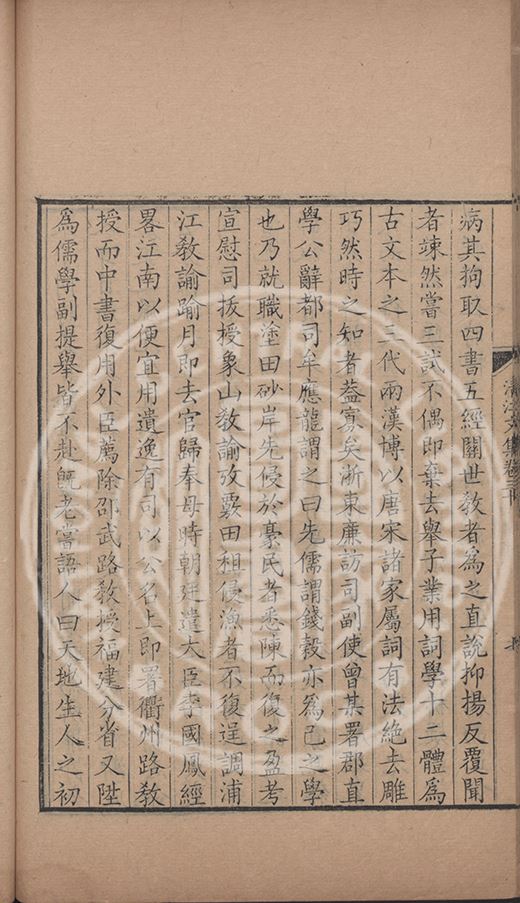 病其拘取四書五經關世教者爲之直說抑揚反覆聞
者竦然嘗三試不偶即棄去舉子業用詞學十二體爲
古文本之三代兩漢博以唐宋諸家屬詞有法絶去雕
巧然時之知者葢寡矣浙東廉訪司副使曾某署郡直
學公辭都司牟應龍謂之曰先儒謂錢穀亦爲己之學
也乃就職塗田砂岸先侵於豪民者悉陳而復之盈考
宣慰司拔授象山教諭攷覈田租侵漁者不復逞調浦
江教諭踰月即去官歸奉母時朝廷遣大臣李國鳳經
畧江南以便宜用遺逸有司以公名上即署衢州路教
授而中書復用外臣薦除邵武路教授福建分省又陞
爲儒學副提舉皆不赴旣老嘗語人曰天地生人之初